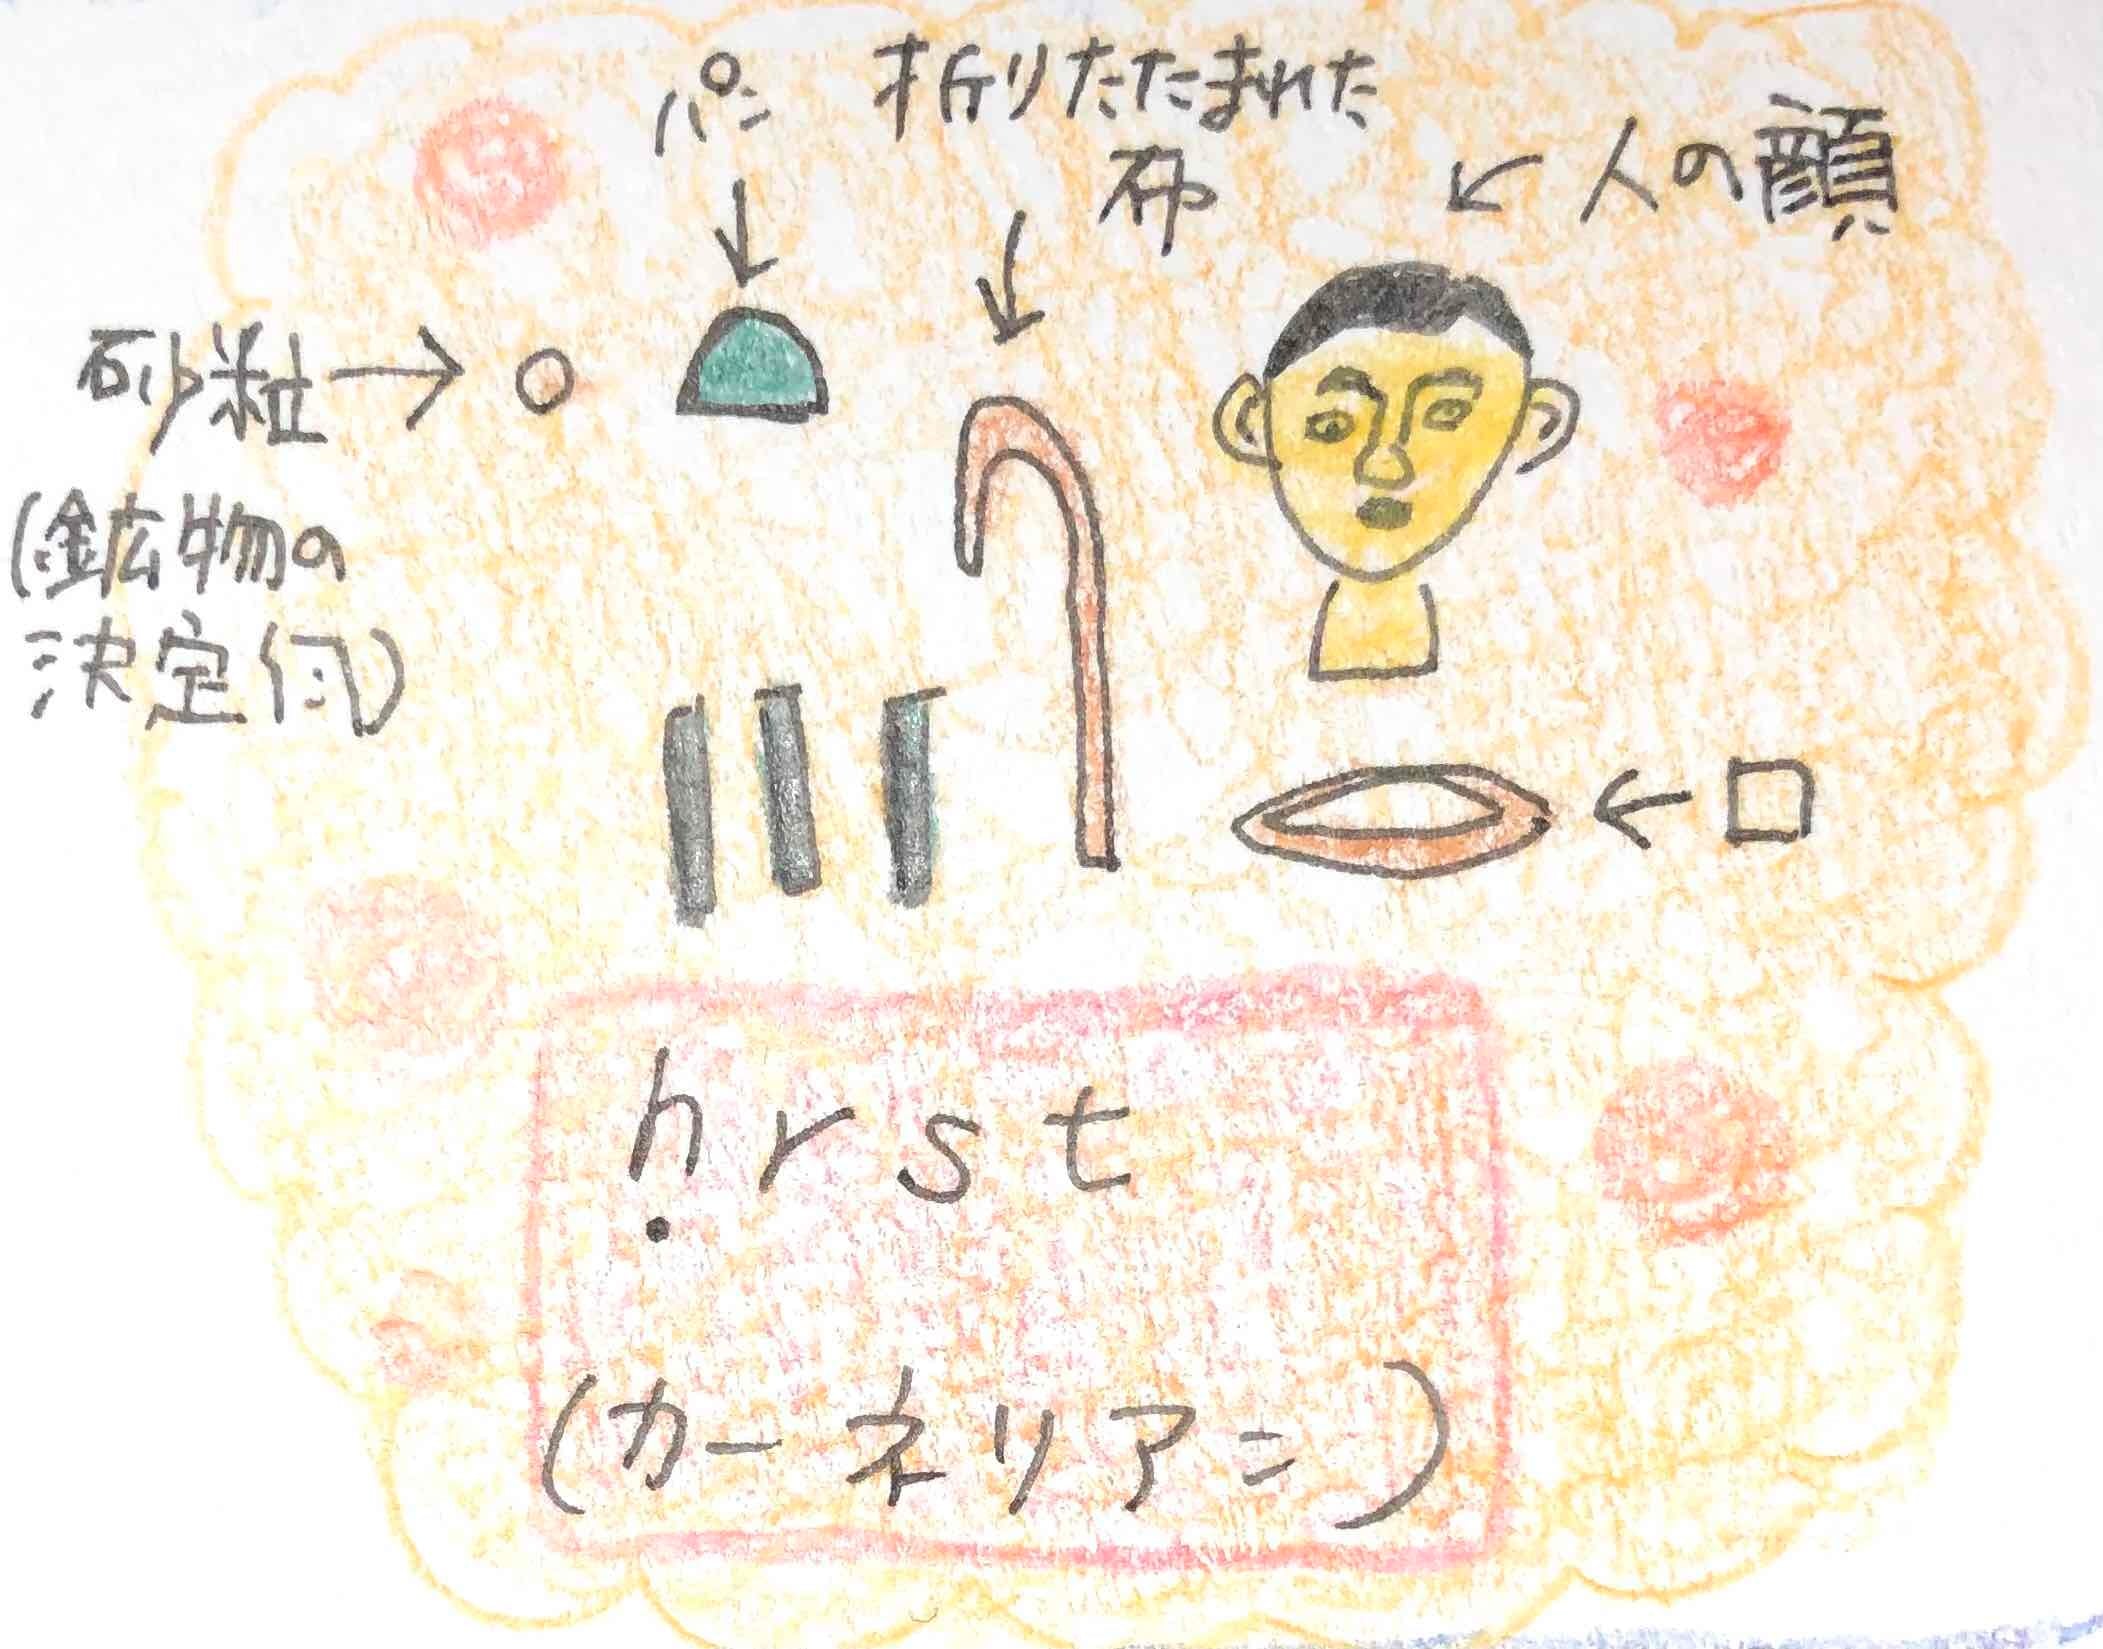 パン
折りたたまれた
布
人の顔
砂粒
(鉱物の
決定付)
口
ḥrst
(カーネリアン)